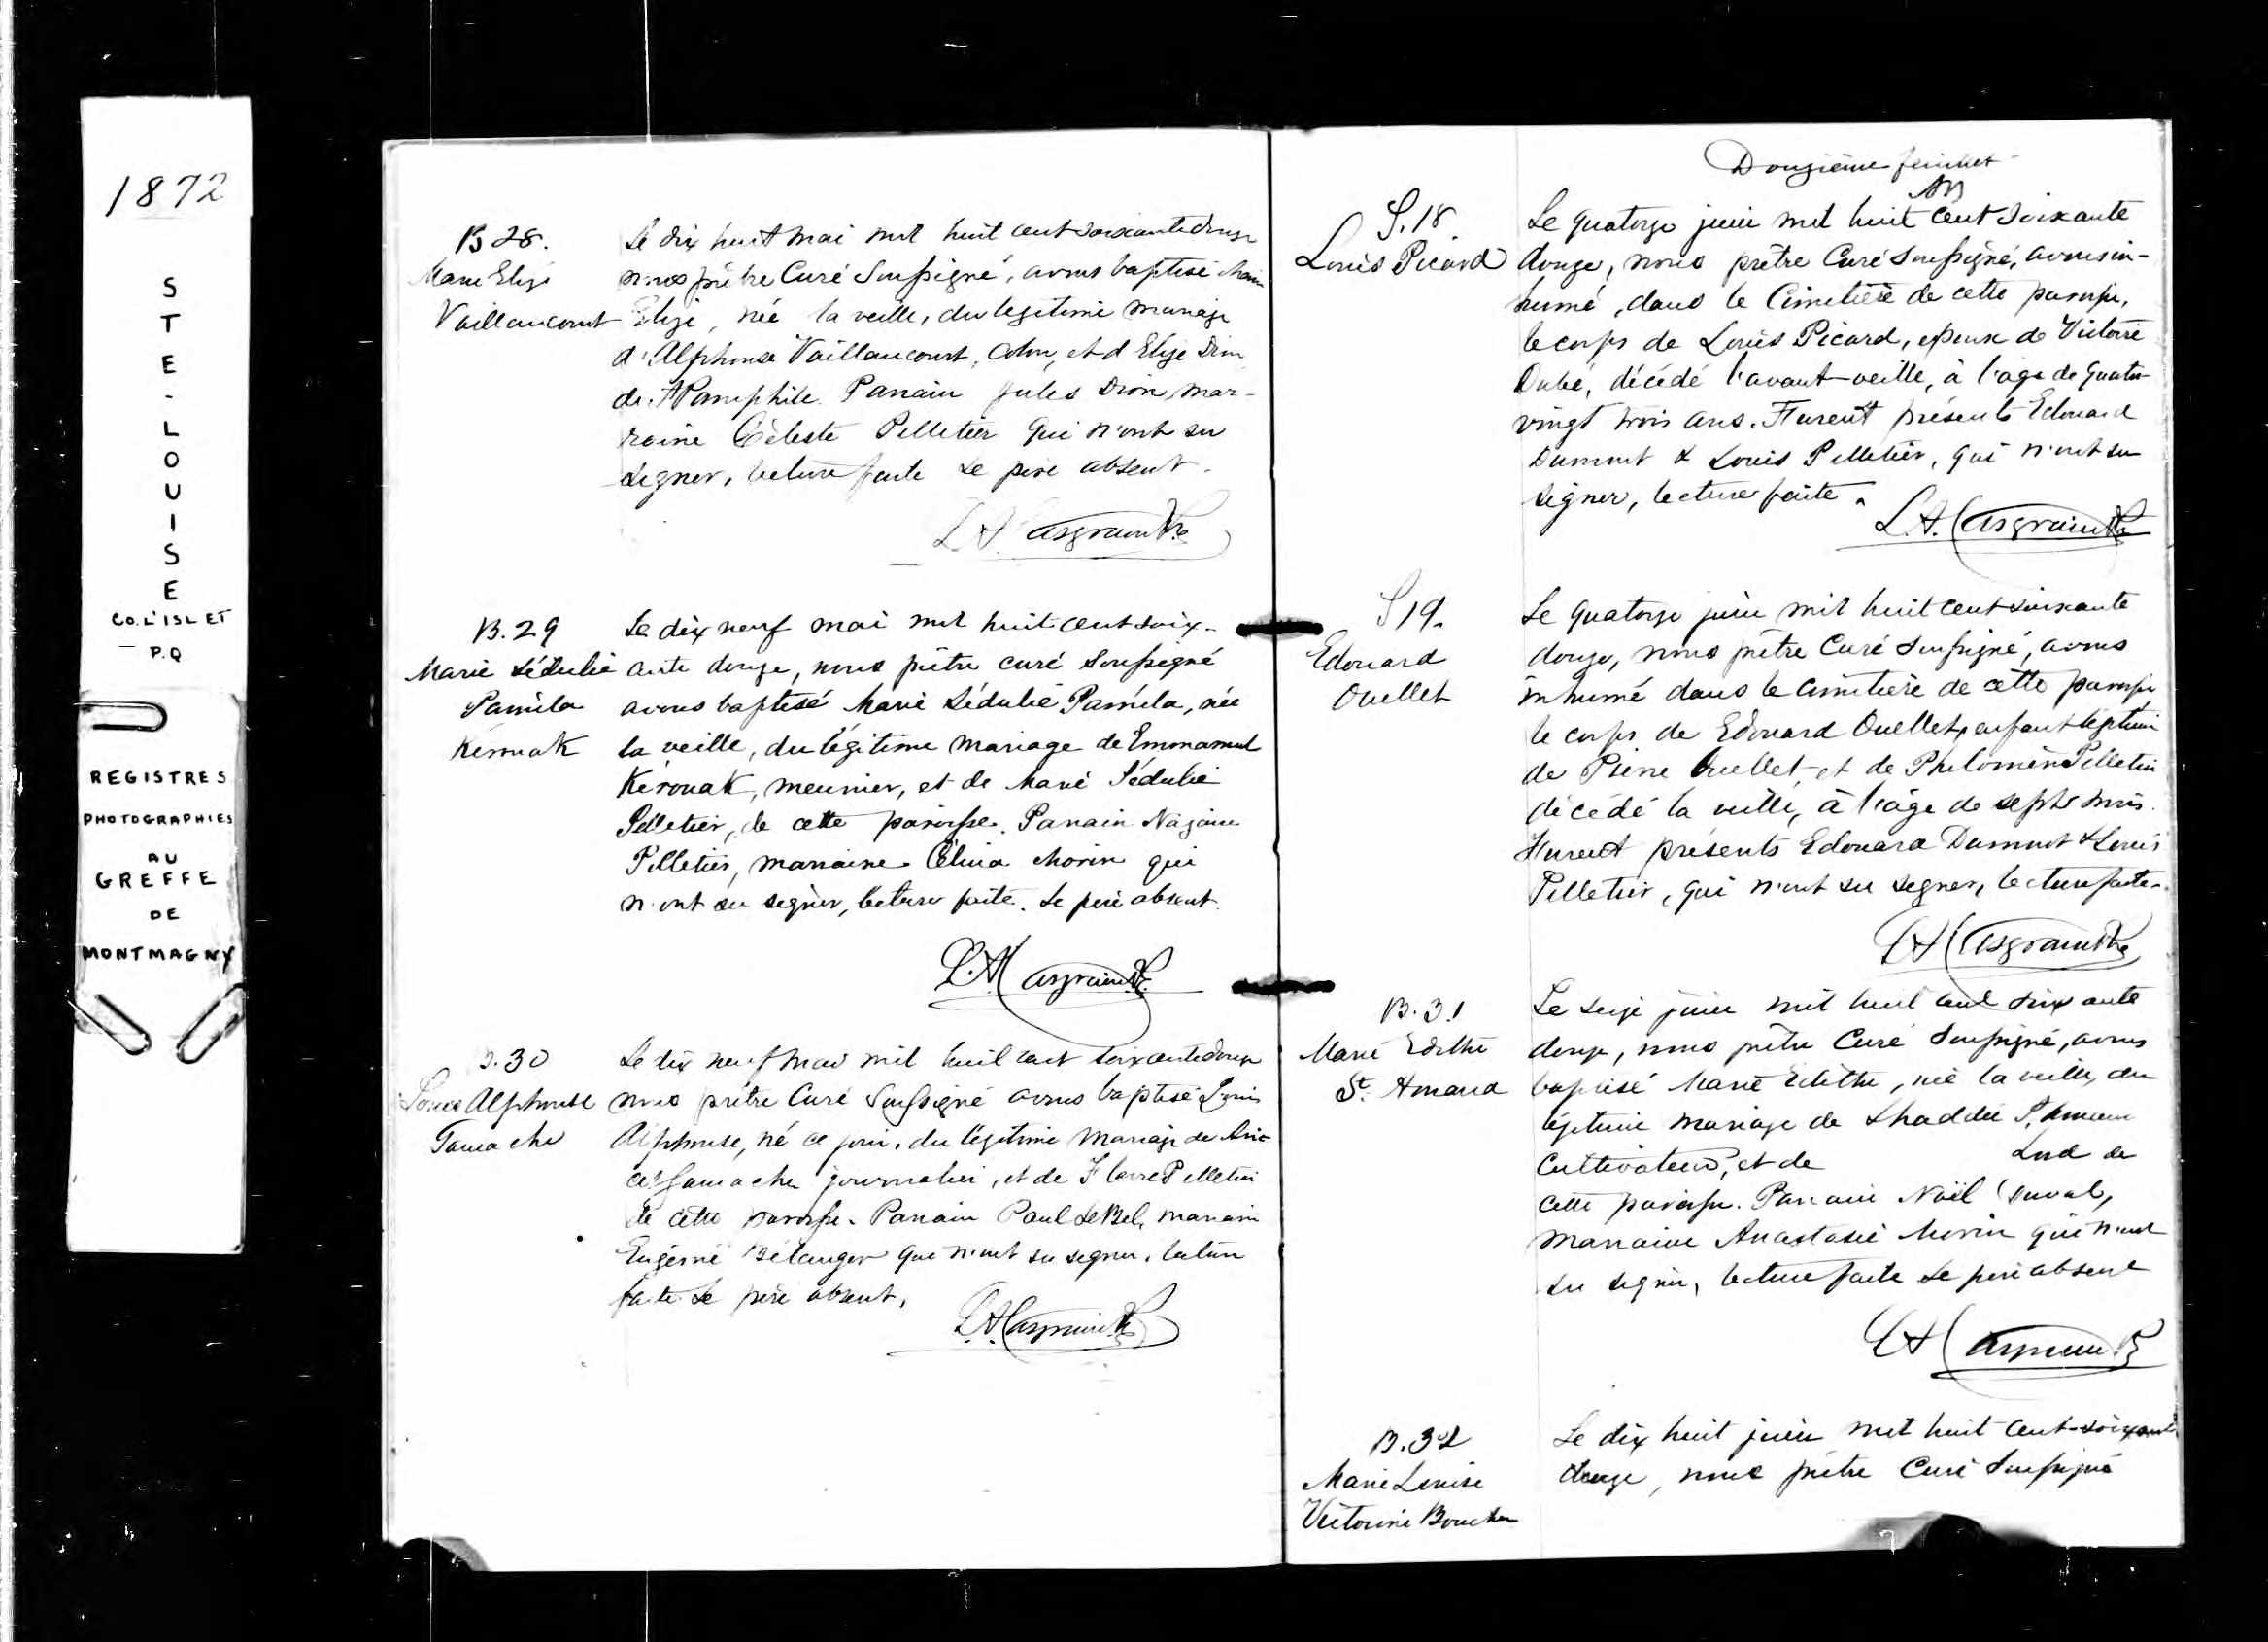 1872
STE-LOUISE
CO. L'ISLET
P.Q.
REGISTRES
PHOTOGRAPHIES
AU
GREFFE
DE
MONTMAGNY
B 28.
Marie Elize
Vaillancourt
Le dix huit mai mil huit cent soixante douze
nous prêtre Curé Soussigné, avons baptisé Marie
Elize, née la veille, du legitime mariage
d'Alphonse Vaillancourt, Colon, et d'Elize Dion
de St Pamphile. Parrain Jules Dion, mar-
raine Céleste Pelletier qui n'ont su
signer, lecture faite le père absent.
L.A. Casgrain Ptre
B.29
Marie Sédulie
Paméla
Kérouak
Le dix neuf mai mil huit cent soix-
ante douze, nous prêtre curé Soussigné
avons baptisé Marie Sédulie Paméla, née
la veille, du légitime mariage de Emmanuel
Kérouak, meunier, et de Marie Sédulie
Pelletier, de cette paroisse. Parrain Nazaire
Pelletier, marraine Célina Morin qui
n'ont su signer, lecture faite. Le père absent.
L.A. Casgrain Ptre
B.30
Louis Alphonse
Gamache
Le dix neuf mai mil huit cent soixante douze
nous prêtre Curé Soussigné avons baptisé Louis
Alphonse, né ce jour, du légitime mariage de
Gamache journalier, et de Pelletier
de cette paroisse. Parrain Paul LeBel, marraine
Eugénie Bélanger qui n'ont su signer, lecture
faite le père absent.
L.A. Casgrain Ptre
Douzième feuillet
S.18
Louis Picard
Le quatorze juin mil huit cent soixante
douze, nous prêtre Curé Soussigné, avons in-
humé, dans le Cimetière de cette paroisse,
le corps de Louis Picard, epoux de Victoire
Dubé, décédé l'avant-veille, à l'age de quatre
vingt trois ans. Furent présents Edouard
Dumont & Louis Pelletier, qui n'ont su
signer, lecture faite.
L.A. Casgrain Ptre
S 19.
Edouard
Ouellet
Le quatorze juin mil huit cent soixante
douze, nous prêtre Curé soussigné, avons
inhumé dans le cimetière de cette paroisse
le corps de Edouard Ouellet, enfant légitime
de Pierre Ouellet et de Philomène Pelletier
décédé la veille, à l'age de sept mois.
Furent présents Edouard Dumont & Louis
Pelletier, qui n'ont su signer, lecture faite.
L.A. Casgrain Ptre
B.31
Marie Edithe
St. Amand
Le seize juin mil huit cent soixante
douze, nous prêtre Curé Soussigné, avons
baptisé Marie Edithe, née la veille, du
légitime mariage de Thaddée St. Amand
Cultivateur, et de Lord de
cette paroisse. Parrain Noël Duval,
marraine Anastasie Morin qui n'ont
su signer, lecture faite le père absent
L.A. Casgrain Ptre
B.32
Marie Louise
Victorine Boucher
Le dix huit juin mil huit cent soixante
douze, nous prêtre Curé Soussigné